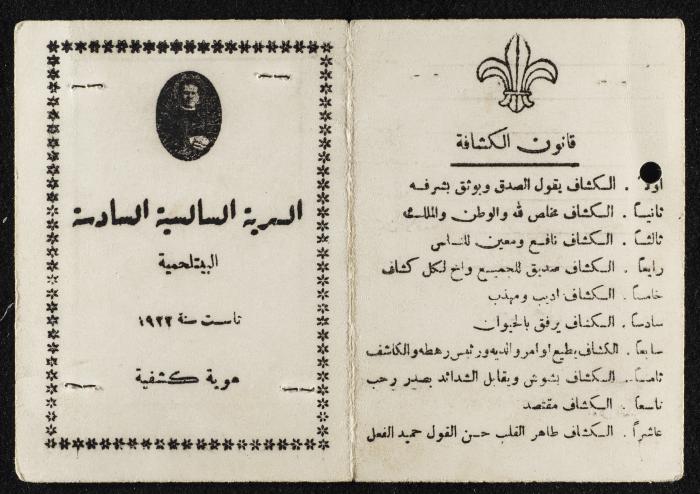 قانون الكشافة
أولاً . الكشاف يقول الصدق ويوثق بشرفه
ثانياً . الكشاف مخلص لله والوطن والملك
ثالثاً . الكشاف نافع ومعين للناس
رابعاً . الكشاف صديق للجميع واخ لكل كشاف
خامساً . الكشاف اديب ومهذب
سادساً . الكشاف يرفق بالحيوان
سابعاً . الكشاف يطيع اوامر والديه ورئيس رهطه والكاشف
ثامناً . الكشاف بشوش ويقابل الشدائد بصدر رحب
تاسعاً . الكشاف مقتصد
عاشراً . الكشاف طاهر القلب حسن القول حميد الفعل
السرية السالسية السادسة
البيتلحمية
تاسست سنة ١٩٢٢
هوية كشفية